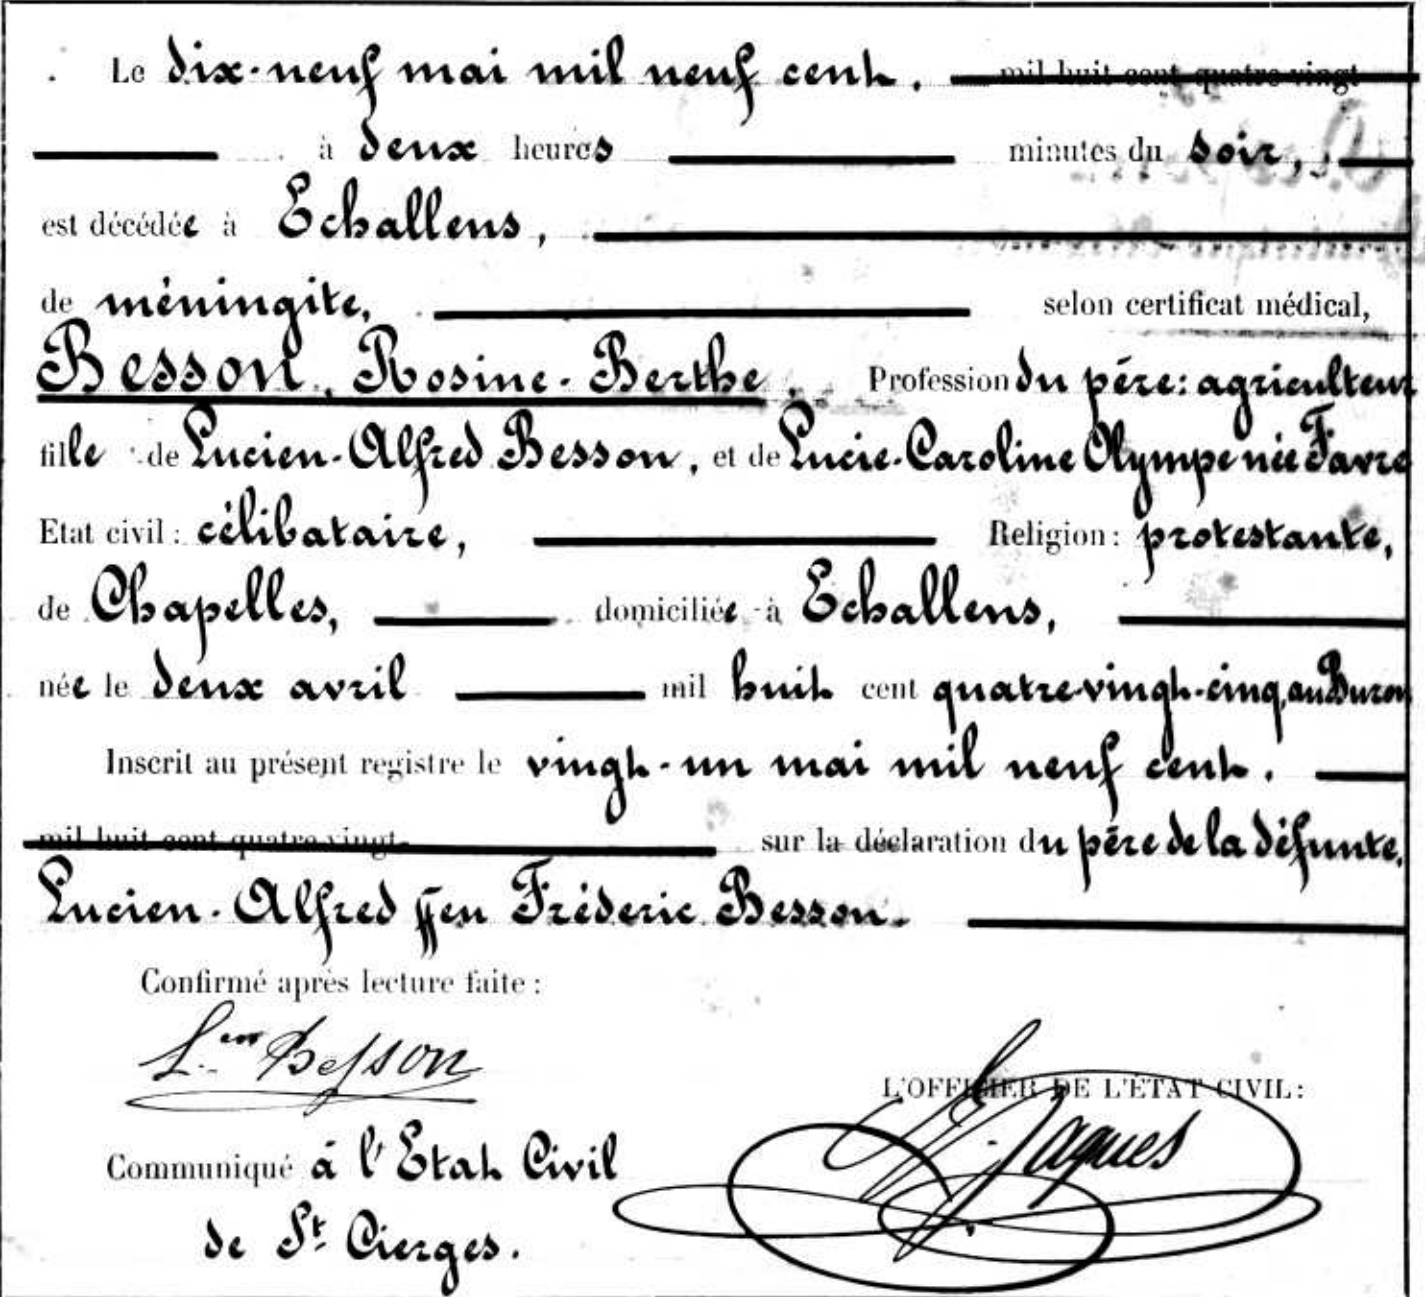 Le dix-neuf mai mil neuf cent. mil huit cent quatre vingt
à deux heures minutes du soir,
est décédée à Echallens,
de méningite, selon certificat médical,
Besson, Rosine-Berthe. Profession du père: agriculteur
fille de Lucien-Alfred Besson, et de Lucie-Caroline Olympe née Favre
Etat civil: célibataire, Religion: protestante,
de Chapelles, domiciliée à Echallens,
née le deux avril mil huit cent quatre-vingt-cinq, au Buron
Inscrit au présent registre le vingt-un mai mil neuf cent.
mil huit cent quatre vingt- sur la déclaration du père de la défunte,
Lucien-Alfred ffeu Fréderic Besson.
Confirmé après lecture faite:
L.en Besson
L'OFFICIER DE L'ÉTAT CIVIL:
Jaques
Communiqué à l'Etat Civil
de St Cierges.